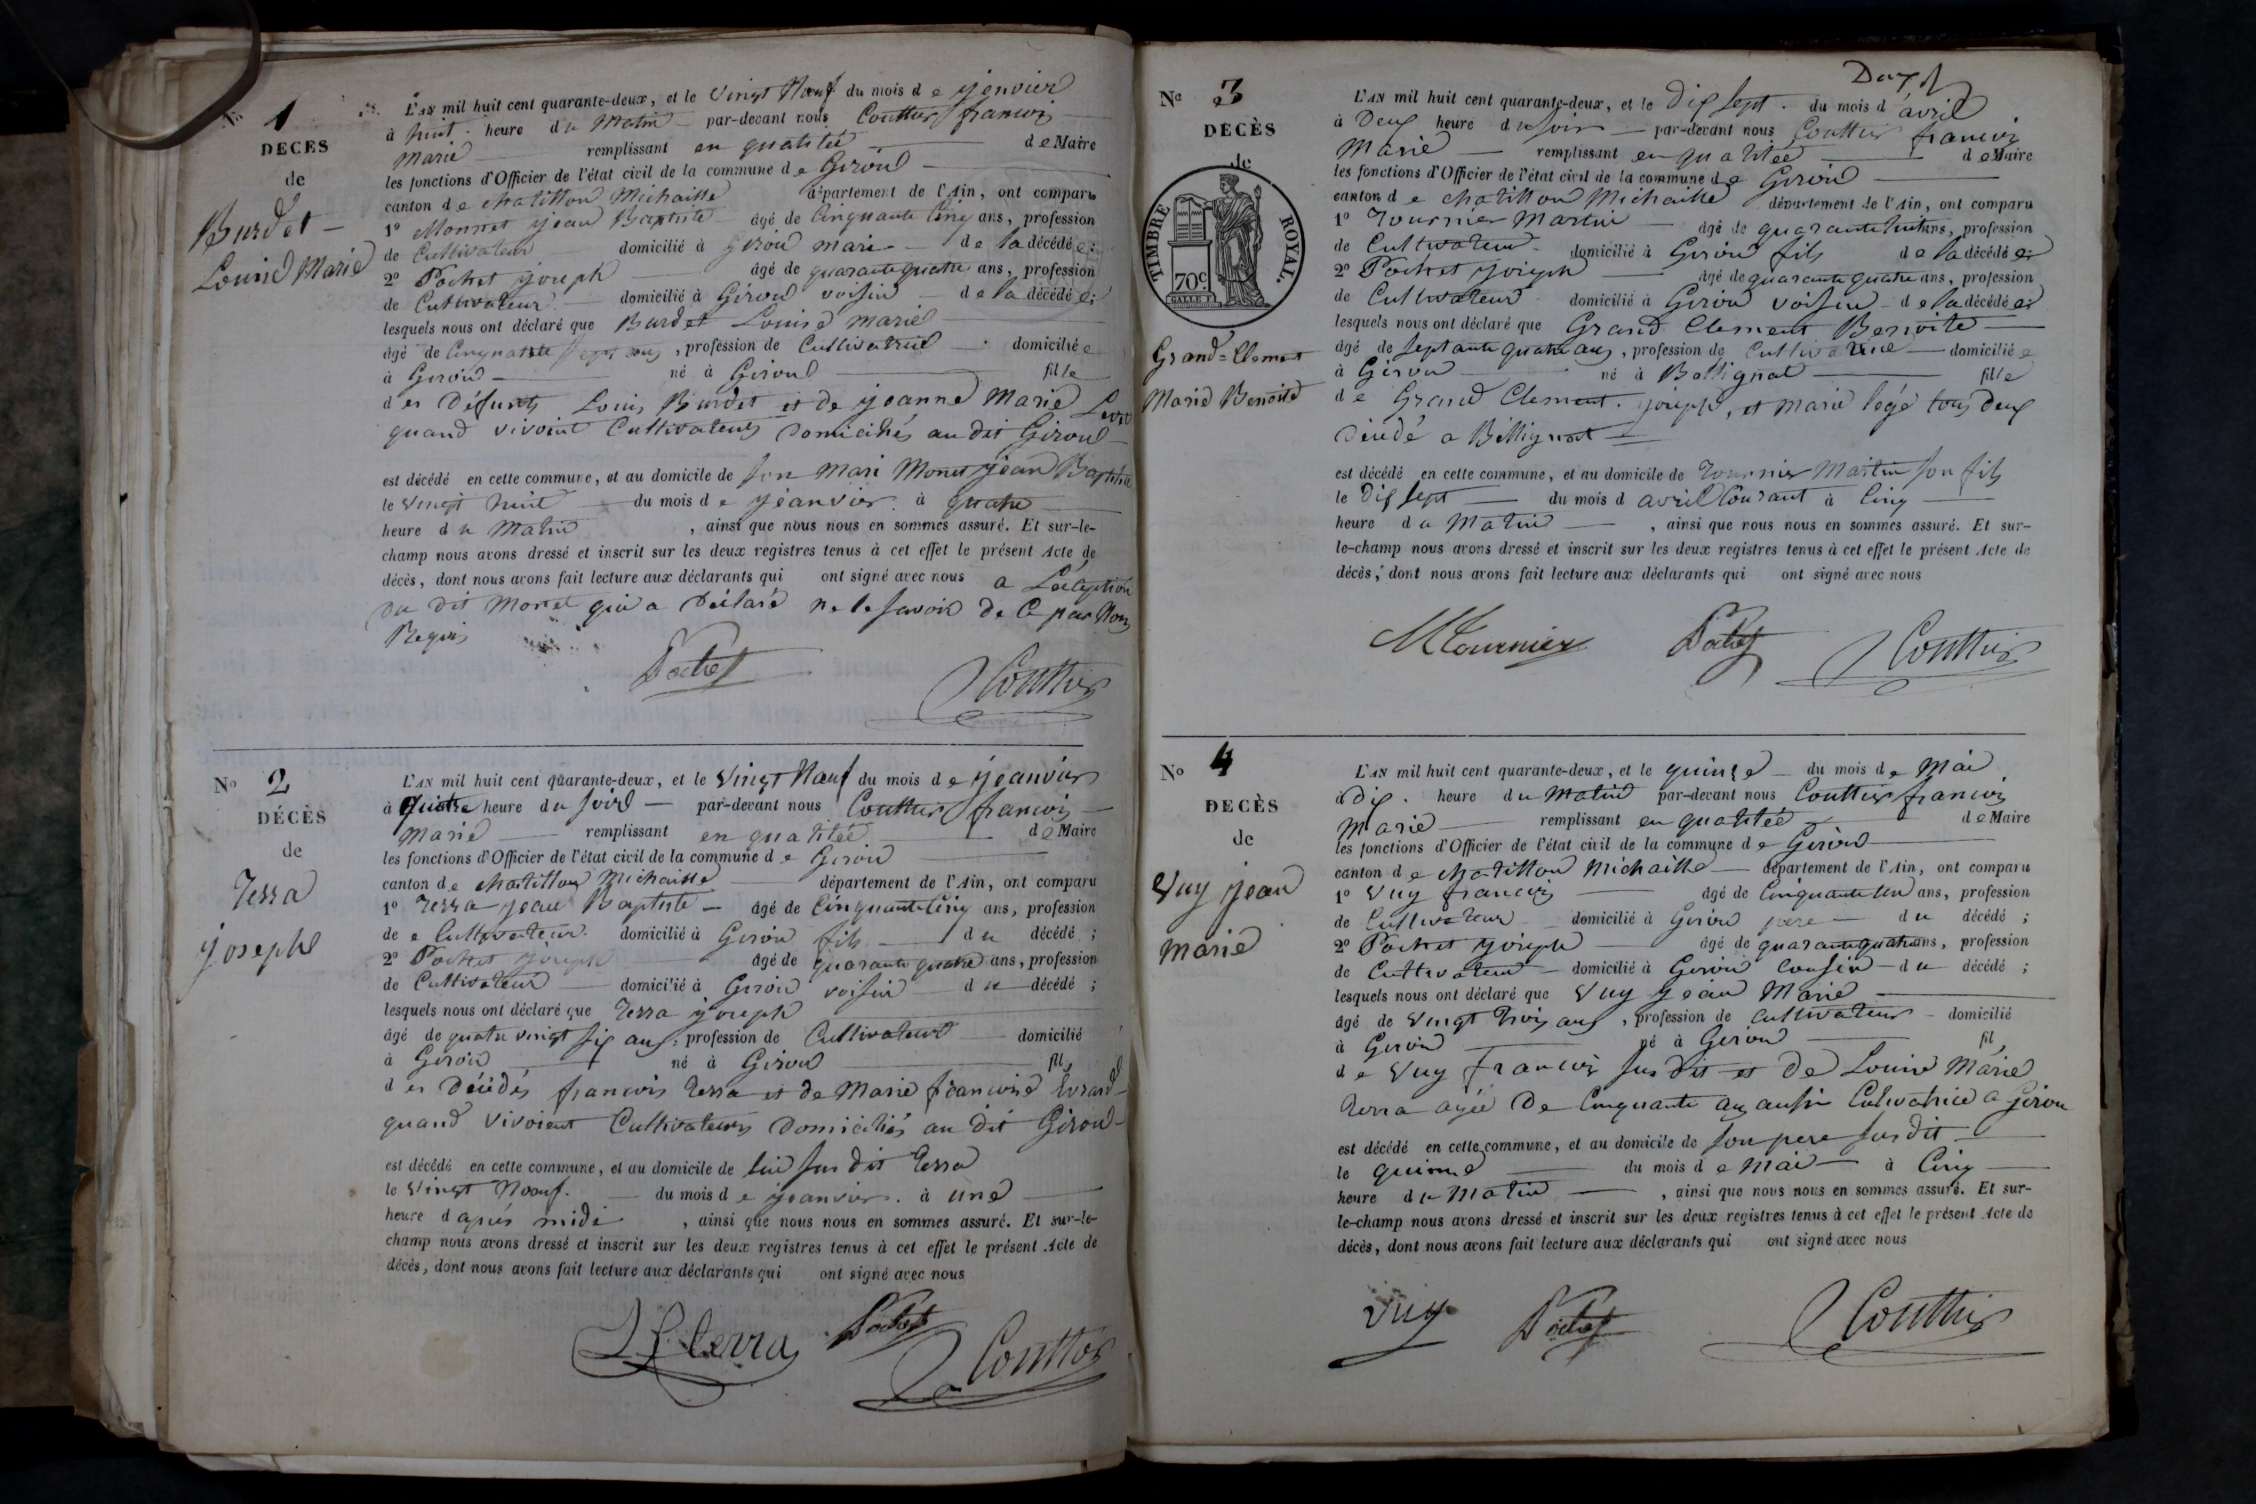 N° 1
DÉCÈS
de
Burdet
Louise Marie
L'AN mil huit cent quarante-deux, et le vingt Neuf du mois de jenvier
à huit heure du Matin par-devant nous Couttier francois
Marie remplissant en qualitée de Maire
les fonctions d'Officier de l'état civil de la commune de Giroud
canton de chatillon Michaille département de l'Ain, ont comparu
1° Monnet jean Baptiste âgé de Cinquante Cinq ans, profession
de Cultivateur domicilié à Giroud mari de la décédée;
2° Pochet joseph âgé de quarante quatre ans, profession
de Cultivateur domicilié à Giroud voisin de la décédée;
lesquels nous ont déclaré que Burdet Louise Marie
âgé de Cinquante sept ans, profession de Cultivatrice domiciliée
à Giroud né à Giroud fille
des Défunts Louis Burdet et de jeanne Marie
quand vivoint Cultivateurs Domiciliés au dit Giroud
est décédé en cette commune, et au domicile de son Mari Monet jean Baptiste
le vingt huit du mois de jeanvier à quatre
heure du Matin, ainsi que nous nous en sommes assuré. Et sur-le-
champ nous avons dressé et inscrit sur les deux registres tenus à cet effet le présent Acte de
décès, dont nous avons fait lecture aux déclarants qui ont signé avec nous a L'exception
du dit Monet qui a Déclaré ne le savoir de Ce par Nous
Requis
Pochet Couttier
N° 2
DÉCÈS
de
Terra
joseph
L'AN mil huit cent quarante-deux, et le Vingt Neuf du mois de jeanvier
à quatre heure du soir par-devant nous Couttier francois
Marie remplissant en qualitée de Maire
les fonctions d'Officier de l'état civil de la commune de Giroud
canton de chatillon Michaille département de l'Ain, ont comparu
1° Terra jean Baptiste âgé de Cinquante Cinq ans, profession
de Cultivateur domicilié à Giroud fils du décédé;
2° Pochet joseph âgé de quarante quatre ans, profession
de Cultivateur domicilié à Giroud voisin du décédé;
lesquels nous ont déclaré que Terra joseph
âgé de quatre vingt six ans, profession de Cultivateur domicilié
à Giroud né à Giroud fils
des Décédés francois Terra et de Marie francoise Evrard
quand vivoient Cultivateurs Domiciliés au dit Giroud
est décédé en cette commune, et au domicile de lui sus dit Terra
le Vingt Noeuf du mois de jeanvier à une
heure d'après midi, ainsi que nous nous en sommes assuré. Et sur-le-
champ nous avons dressé et inscrit sur les deux registres tenus à cet effet le présent Acte de
décès, dont nous avons fait lecture aux déclarants qui ont signé avec nous
terra Pochet Couttier
N° 3
DÉCÈS
de
TIMBRE ROYAL.
70c.
Grand-Clement
Marie Benoite
L'AN mil huit cent quarante-deux, et le Dix sept du mois d'avril
à Deux heure du soir par-devant nous Couttier francois
Marie remplissant en qualitée de Maire
les fonctions d'Officier de l'état civil de la commune de Giroud
canton de chatillon Michaille département de l'Ain, ont comparu
1° Tournier Martin âgé de quarante huit ans, profession
de Cultivateur domicilié à Giroud fils de la décédée;
2° Pochet joseph âgé de quarante quatre ans, profession
de Cultivateur domicilié à Giroud voisin de la décédée;
lesquels nous ont déclaré que Grand Clement Benoite
âgé de septante quatre ans, profession de Cultivatrice domiciliée
à Giroud né à Bellignat fille
de Grand Clement joseph, et Marie legé tous deux
Décédé a Bélligniat
est décédé en cette commune, et au domicile de Tournier Martin son fils
le Dix sept du mois d avril Courant à Cinq
heure du Matin, ainsi que nous nous en sommes assuré. Et sur-
le-champ nous avons dressé et inscrit sur les deux registres tenus à cet effet le présent Acte de
décès, dont nous avons fait lecture aux déclarants qui ont signé avec nous
M Tournier Pochet Couttier
N° 4
DÉCÈS
de
Vuy jean
Marie
L'AN mil huit cent quarante-deux, et le quinze du mois de Mai
à dix heure du Matin par-devant nous Couttier francois
Marie remplissant en qualitée de Maire
les fonctions d'Officier de l'état civil de la commune de Giroud
canton de chatillon Michaille département de l'Ain, ont comparu
1° Vuy francois âgé de Cinquante Un ans, profession
de Cultivateur domicilié à Giroud pere du décédé;
2° Pochet joseph âgé de quarante quatre ans, profession
de Cultivateur domicilié à Giroud Cousin du décédé;
lesquels nous ont déclaré que Vuy jean Marie
âgé de Vingt trois ans, profession de Cultivateur domicilié
à Giroud né à Giroud fils
de Vuy francois sus dit et de Louise Marie
Terra agée De Cinquante ans aussi Cultivatrice a Girou
est décédé en cette commune, et au domicile de son pere sus dit
le quinze du mois de Mai à Cinq
heure du Matin, ainsi que nous nous en sommes assuré. Et sur-
le-champ nous avons dressé et inscrit sur les deux registres tenus à cet effet le présent Acte de
décès, dont nous avons fait lecture aux déclarants qui ont signé avec nous
Vuy Pochet Couttier